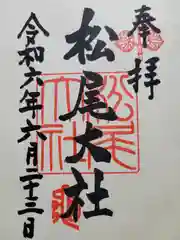 奉拝
松尾大社
松尾大社
令和六年六月二十三日